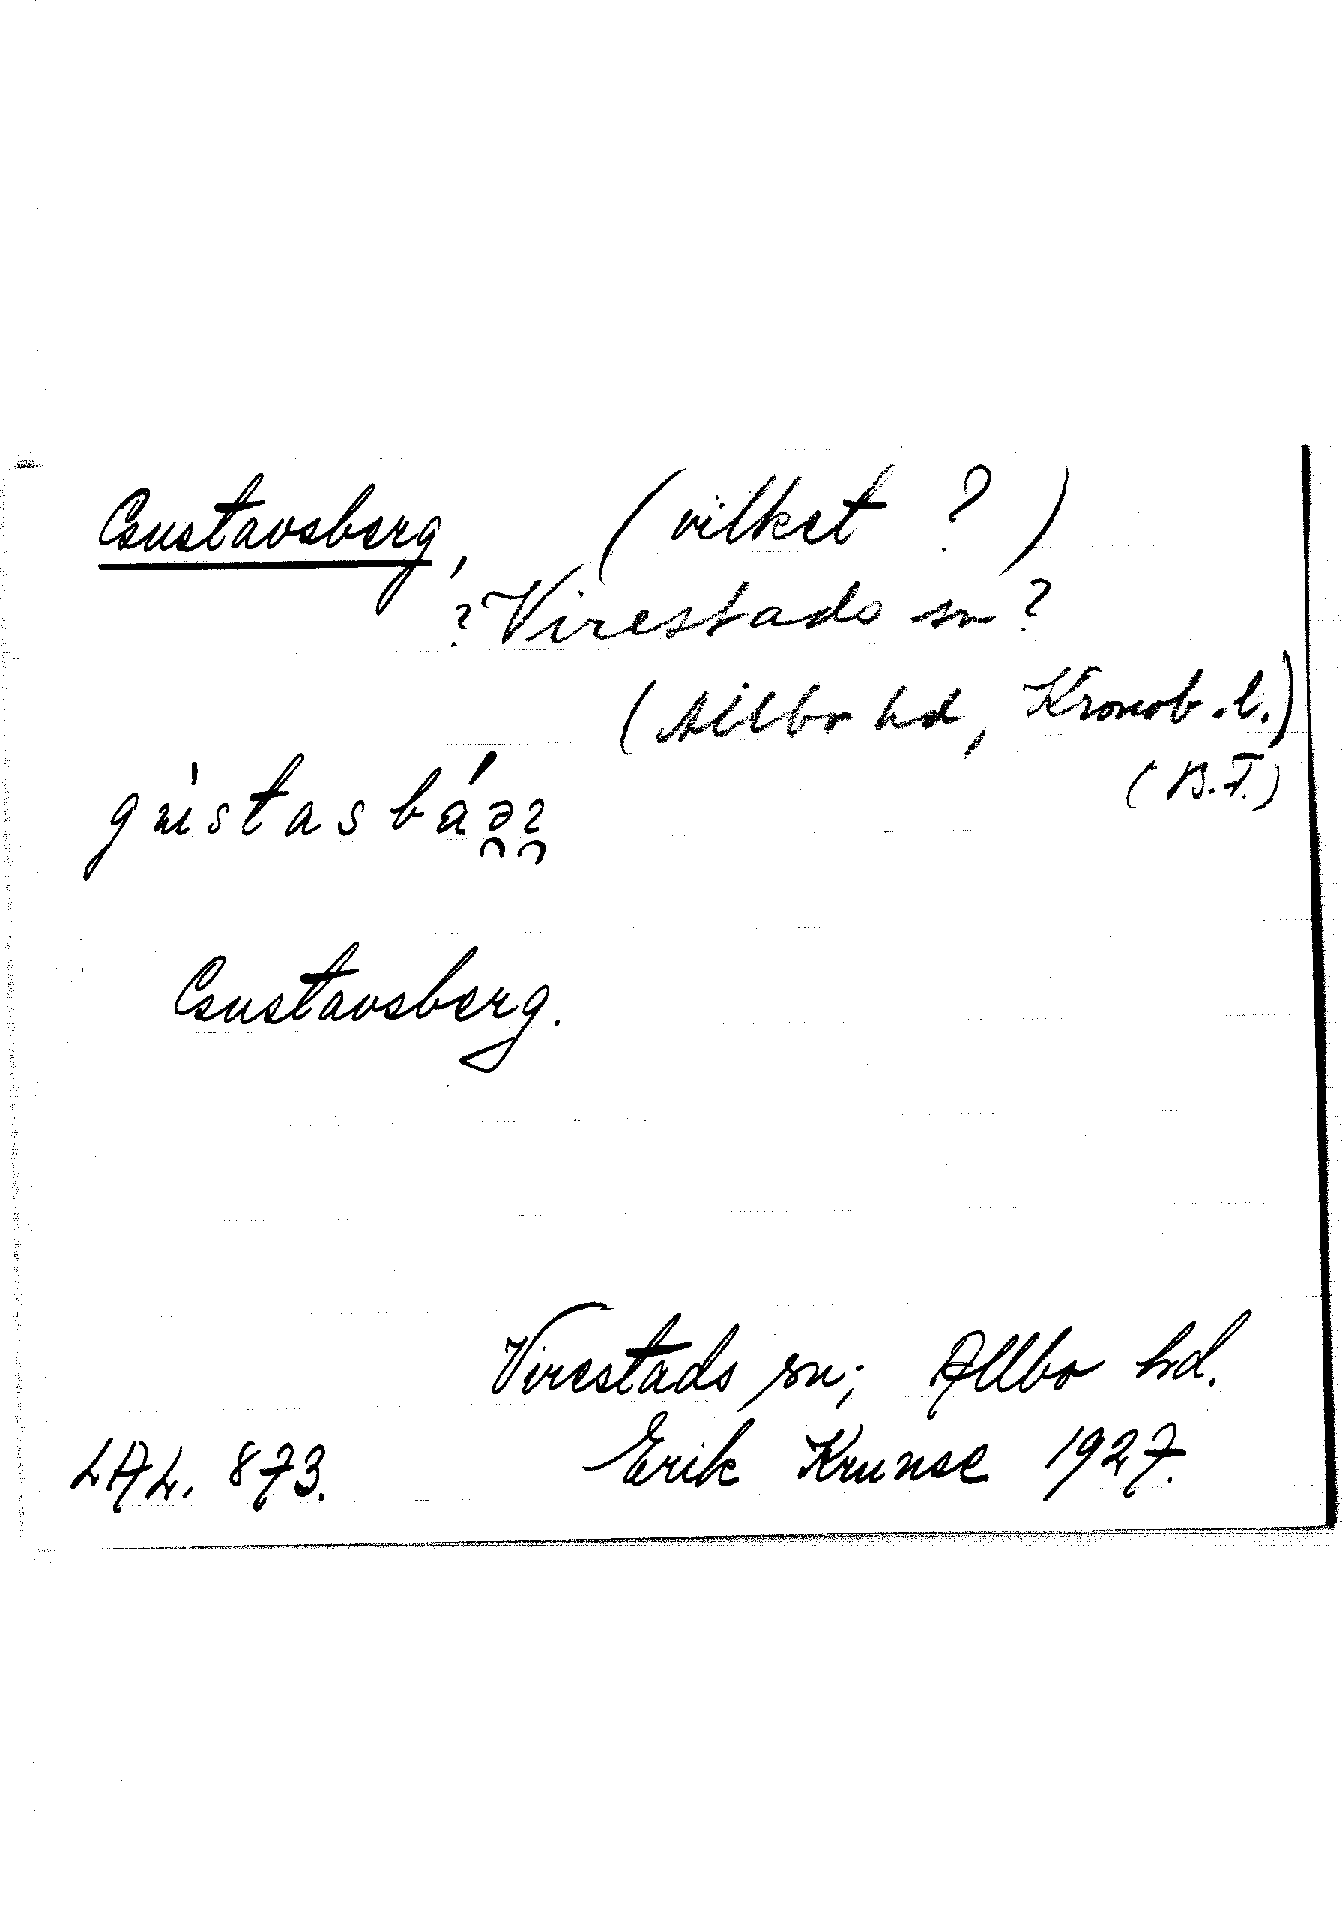 Gustavsberg, (vilket ?)
? Virestads sn ?
(Allbo hd, Kronob. l.)
(B.F.)
Gustavsberg.
Virestads sn; Allbo hd.
LAL. 873. Erik Krunse 1927.